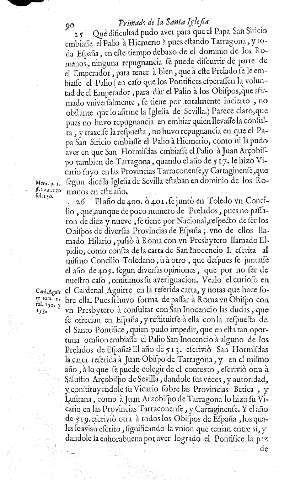 90 Primado de la Santa Iglesia
25 Què dificultad pudo aver para que el Papa San Siricio
embiasse el Palio à Hicmerio à pues estando Tarragona, y to-
da España, en este tiempo debaxo de el dominio de los Ro-
manos, ninguna repugnancia se puede discurrir de parte de
el Emperador, para tener à bien, que à este Prelado se le em-
biasse el Palio; en caso que los Pontifices esperassen la volun-
tad de el Emperador, para dàr el Palio à los Obispos, que afir-
mado vniversalmente, se tiene por totalmente incierto, no
obstante que lo afirme la Iglesia de Sevilla.) Parece claro, que
pues no huvo repugnancia en embiar quien llevasse la consul-
ta, y traxesse la respuesta, no huvo repugnancia en que el Pa-
pa San Siricio embiasse el Palio à Hicmerio, como ni la pudo
aver en que San Hormisdas embiasse el Palio à Juan Arçobis-
po tambien de Tarragona, quando el año de 517. le hizo Vi-
cario suyo en las Provincias Tarraconense, y Cartaginense, que
segun dize la Iglesia de Sevilla estaban en dominio de los Ro-
manos en este año.
26 El año de 400. ò 401. se juntò en Toledo vn Conci-
lio, que aunque de poco numero de Prelados, pues no passa-
ron de diez y nueve, se tiene por Nacional, respecto de ser los
Obispos de diversas Provincias de España; vno de ellos lla-
mado Hilario, passò à Roma con vn Presbytero llamado El-
pidio, como consta de la carta de San Inocencio I. escrita al
mismo Concilio Toledano, ù à otro, que despues se juntasse
el año de 405. segun diversas opiniones, que por no ser de
nuestro caso, omitimos su averiguacion. Vease el curioso en
el Cardenal Aguirre en la referida carta, y notas que hace so-
bre ella. Pues si huvo forma de passar à Roma vn Obispo con
vn Presbytero à consultar con San Inocencio las dudas, que
se ofrecian en España, y restituirse à ella con la respuesta de
el Santo Pontifice, quien pudo impedir, que en esta tan opor-
tuna ocasion embiasse el Palio San Inocencio à alguno de los
Prelados de España? El año de 513. escriviò San Hormisdas
la carta referida à Juan Obispo de Tarragona, y en el mismo
año, à lo que se puede colegir de el contexto, escriviò otra à
Salustio Arçobispo de Sevilla, dandole sus vezes, y autoridad,
y constituyendole su Vicario sobre las Provincias Betica, y
Lusitana, como à Juan Arçobispo de Tarragona lo hizo su Vi-
cario en las Provincias Tarraconense, y Cartaginense. Y el año
de 519. escriviò otra à todos los Obispos de España, los qua-
les le avia escrito, significando la union que tenian entre sì, y
dandole la enhorabuena por aver logrado el Pontifice la paz
de